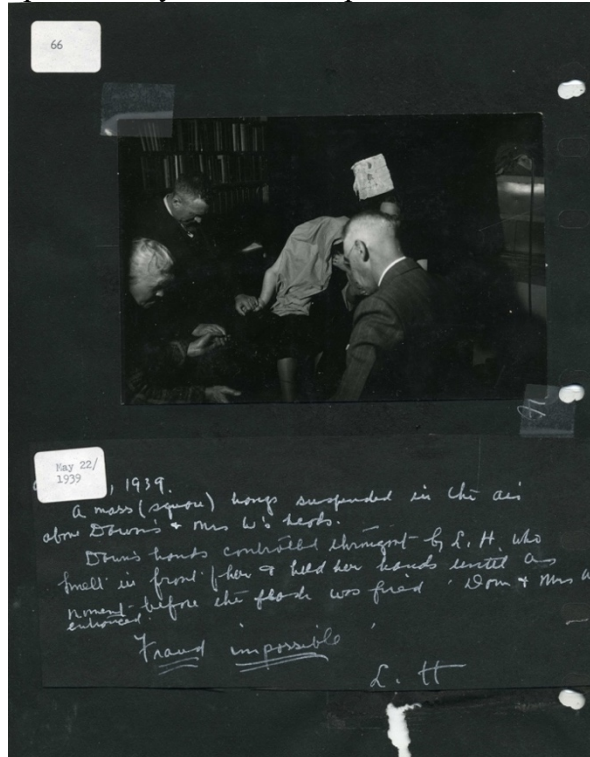 66
May 22/
1939
, 1939.
A mass (square) hangs suspended in the air
above Dawn's & Mrs W's heads.
Dawn's hands controlled throughout by L. H. who
knelt in front of her & held her hands until a
moment before the flash was fired. Dawn & Mrs W
entranced.
Fraud impossible
L. H